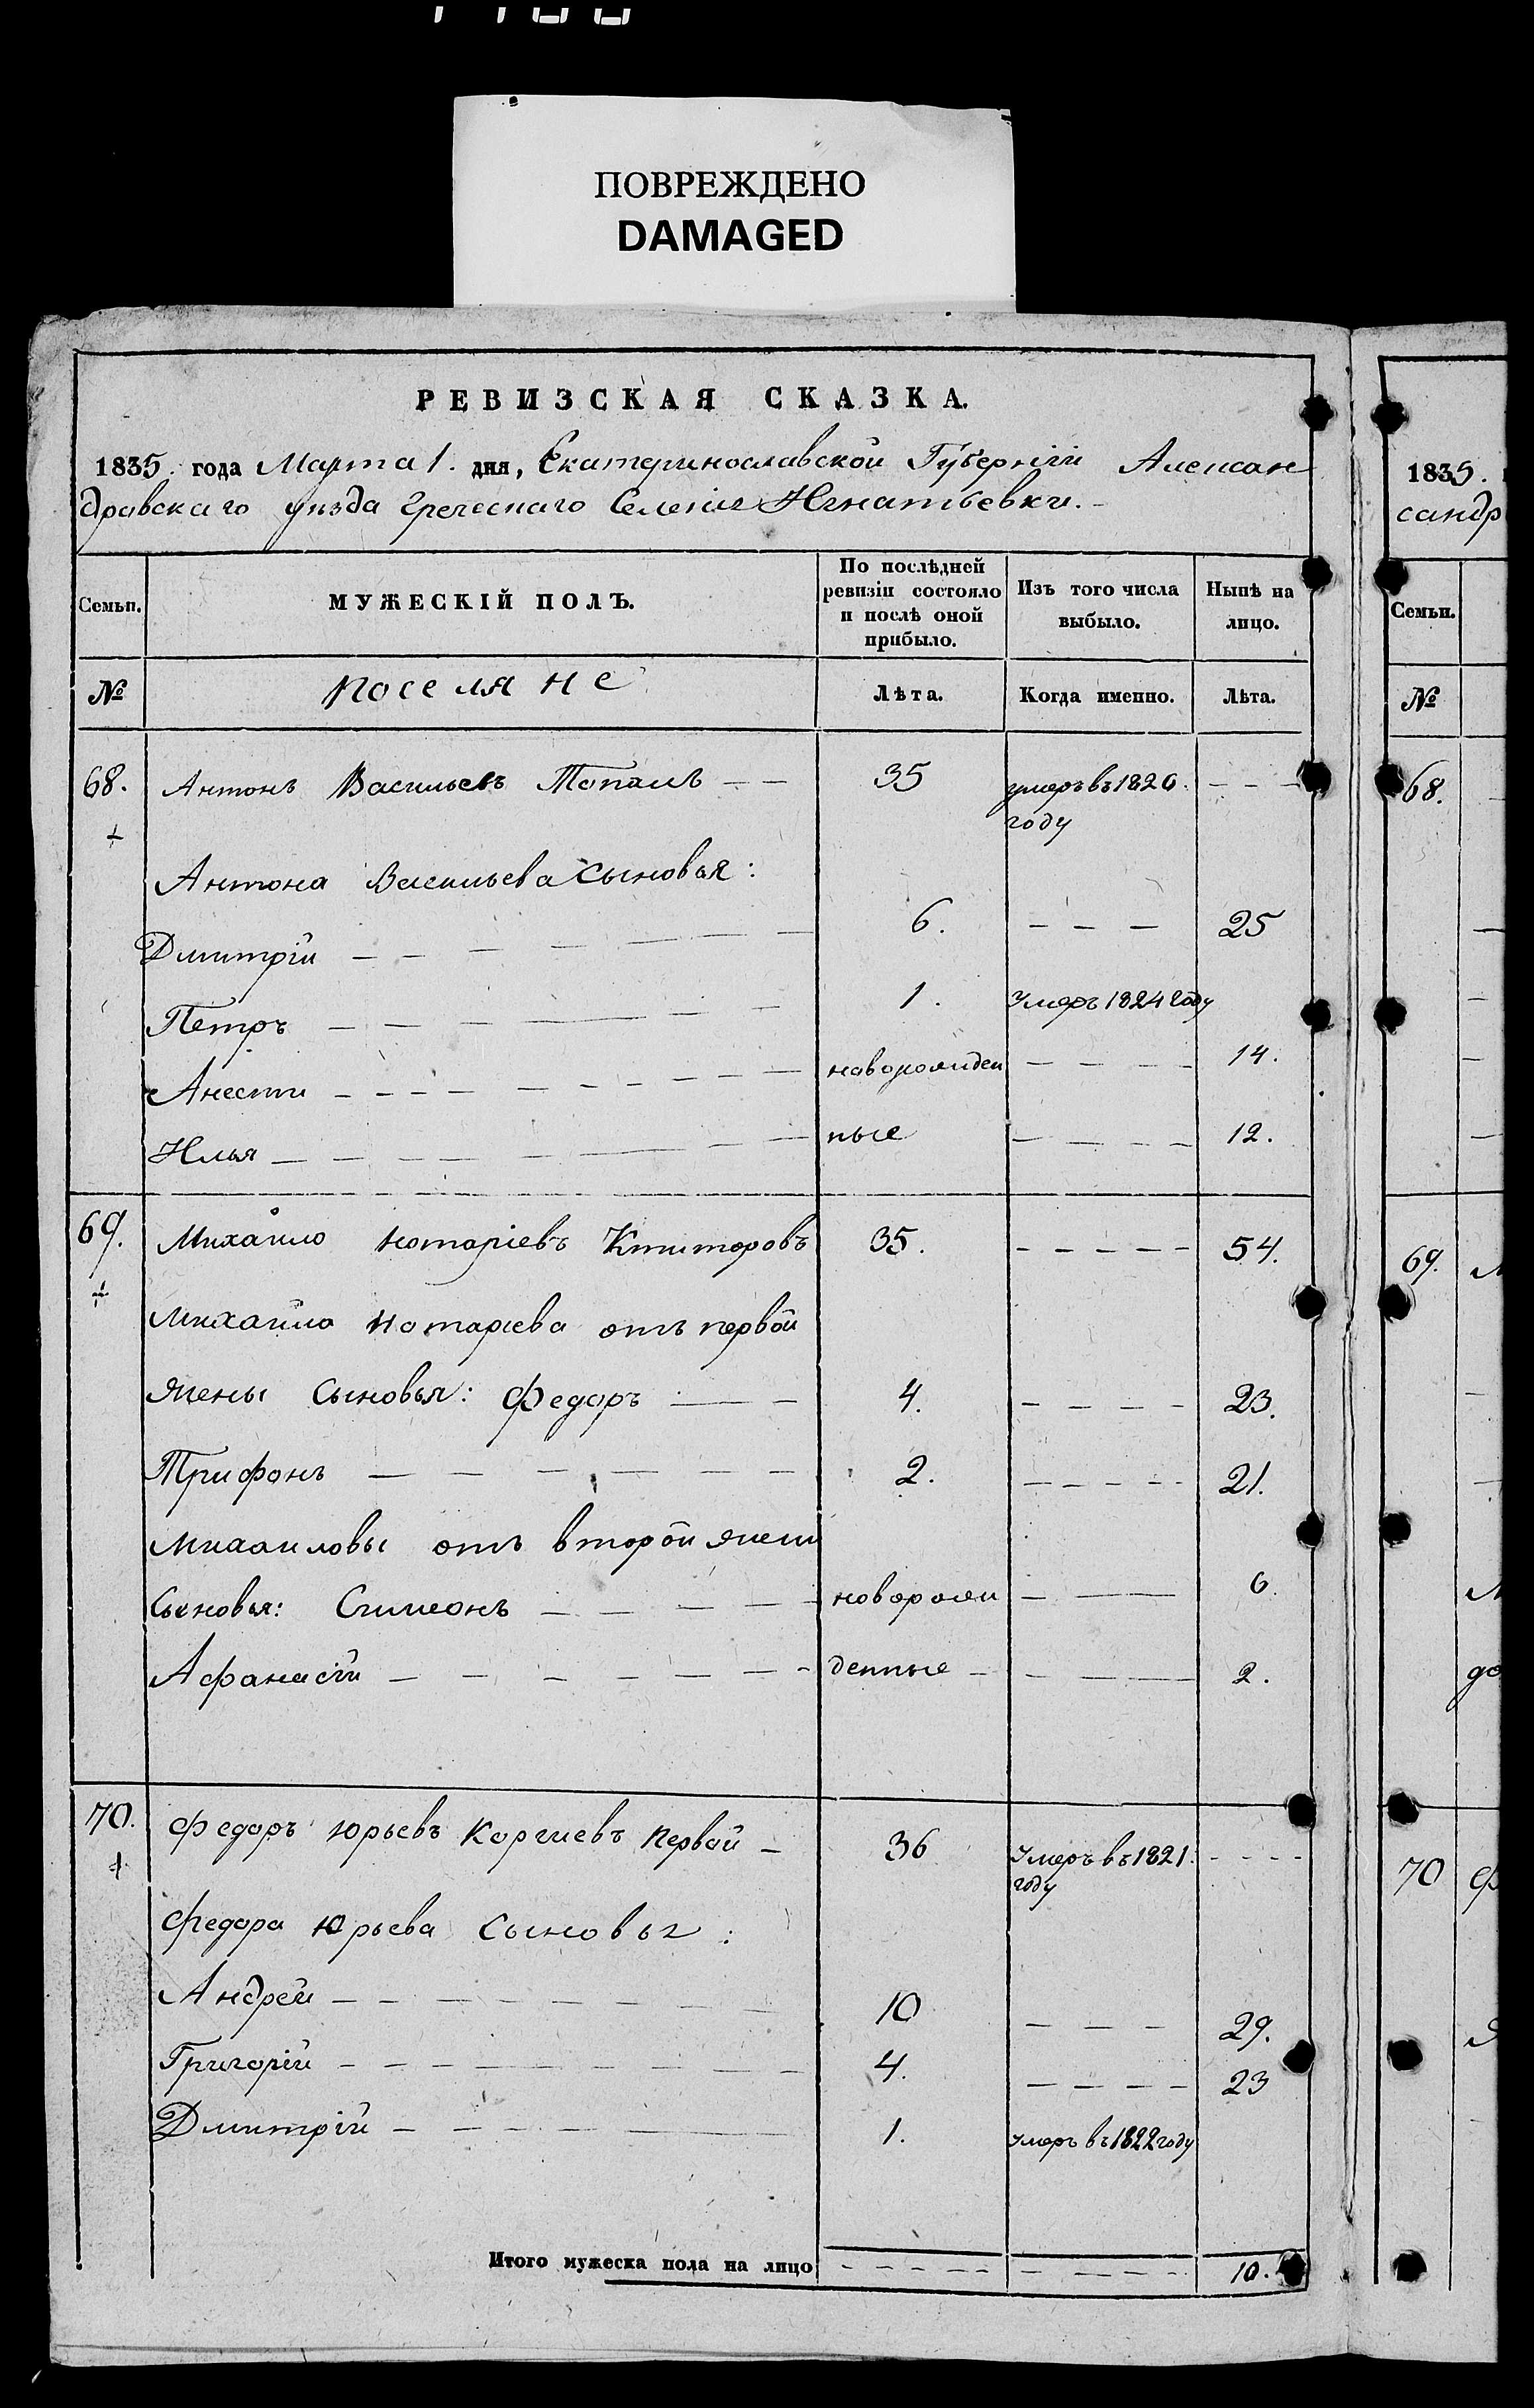 ПОВРЕЖДЕНО
DAMAGED
РЕВИЗСКАЯ СКАЗКА.
1835. года Марта 1. дня, Екатеринославской Губерніи Алексан
дравскаго уѣзда Греческаго Селенія Игнатьевки.
Семьи. МУЖЕСКІЙ ПОЛЪ. По послѣдней ревизіи состояло и послѣ оной прибыло. Изъ того числа выбыло. Нынѣ на лицо.
№ Поселяне Лѣта. Когда именно. Лѣта.
68. Антонъ Васильевъ Топалъ 35 умеръ въ 1820. году
Антона Васильева Сыновья:
Дмитрій 6. 25
Петръ 1. Умеръ 1824 году
Анести новорожден 14.
Илья ные 12.
69. Михайло Нотаріевъ Ктиторовъ 35. 54.
Михайла Нотаріева отъ первой
жены Сыновья: Федоръ 4. 23.
Трифонъ 2. 21.
Михайловы отъ второй жены
Сыновья: Симеонъ новорож 6.
Афанасій денные 2.
70. Федоръ Юрьевъ Коргиевъ Первой 36 Умеръ въ 1821. году
Федора Юрьева Сыновья:
Андрей 10 29.
Григорій 4. 23
Дмитрій 1. умеръ въ 1822 году
Итого мужеска пола на лицо 10.
1835.
сандр
Семьи.
№
68.
69.
до
70 Ф